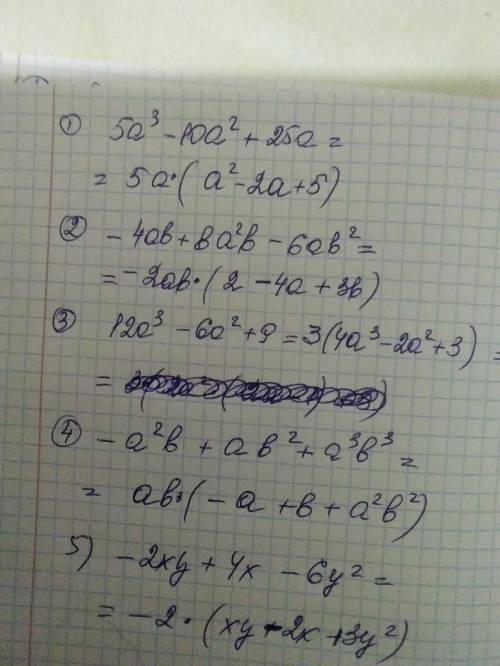 ① 5a³ - 10a² + 25a =
= 5a·(a² - 2a + 5)
② - 4ab + 8a²b - 6ab² =
= - 2ab·(2 - 4a + 3b)
③ 12a³ - 6a² + 9 = 3(4a³ - 2a² + 3) =
=
④ - a²b + ab² + a³b³ =
= ab·(- a + b + a²b²)
5) - 2xy + 4x - 6y² =
= - 2·(xy - 2x + 3y²)